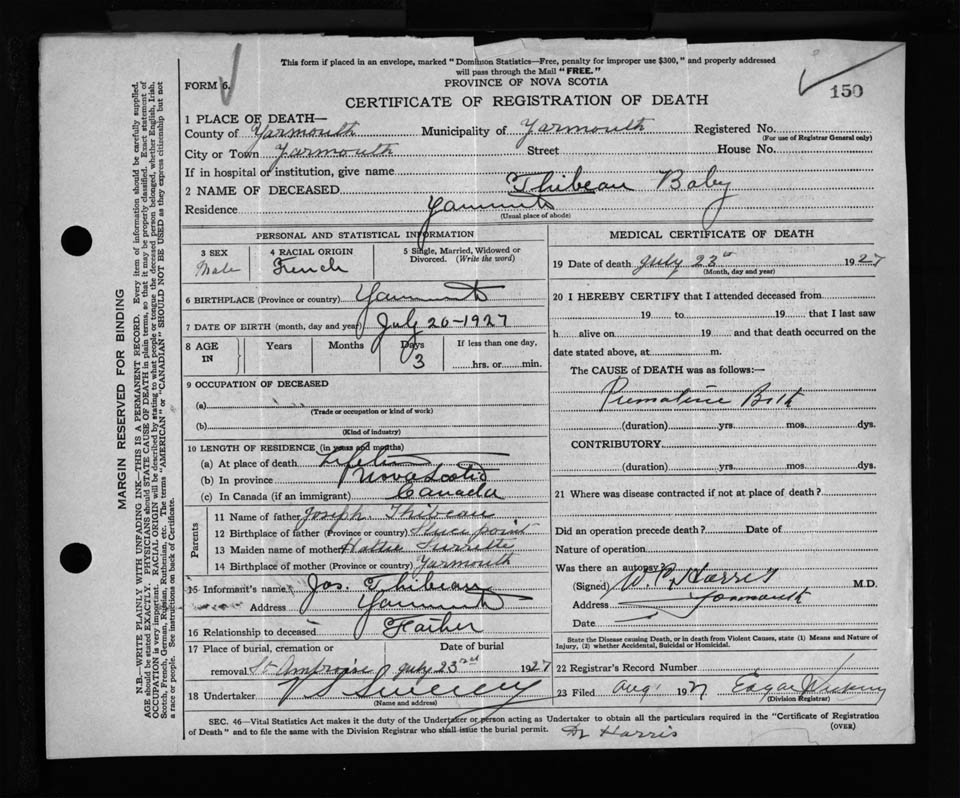 This form if placed in an envelope, marked "Dominion Statistics—Free, penalty for improper use $300," and properly addressed
will pass through the Mail "FREE."
FORM 6.
PROVINCE OF NOVA SCOTIA
150
CERTIFICATE OF REGISTRATION OF DEATH
1 PLACE OF DEATH—
County of Yarmouth Municipality of Yarmouth Registered No.
(For use of Registrar General only)
City or Town Yarmouth Street House No.
If in hospital or institution, give name
2 NAME OF DECEASED Thibeau Baby
Residence Yarmouth
(Usual place of abode)
PERSONAL AND STATISTICAL INFORMATION
3 SEX 4 RACIAL ORIGIN 5 Single, Married, Widowed or
Divorced. (Write the word)
Male French
6 BIRTHPLACE (Province or country) Yarmouth
7 DATE OF BIRTH (month, day and year) July 20-1927
8 AGE IN Years Months Days If less than one day,
3 hrs. or min.
9 OCCUPATION OF DECEASED
(a)
(Trade or occupation or kind of work)
(b)
(Kind of industry)
10 LENGTH OF RESIDENCE (in years and months)
(a) At place of death Lifetime
(b) In province Nova Scotia
(c) In Canada (if an immigrant) Canada
Parents
11 Name of father Joseph Thibeau
12 Birthplace of father (Province or country) point
13 Maiden name of mother Hattie Surrette
14 Birthplace of mother (Province or country) Yarmouth
15 Informant's name Jos. Thibeau
Address Yarmouth
16 Relationship to deceased Father
17 Place of burial, cremation or Date of burial
removal St Ambroise July 23rd 1927
18 Undertaker Sweeney
(Name and address)
MEDICAL CERTIFICATE OF DEATH
19 Date of death July 22 1927
(Month, day and year)
20 I HEREBY CERTIFY that I attended deceased from
19 to 19 that I last saw
h alive on 19 and that death occurred on the
date stated above, at m.
The CAUSE of DEATH was as follows:—
Premature Birth
(duration) yrs. mos. dys.
CONTRIBUTORY
(duration) yrs. mos. dys.
21 Where was disease contracted if not at place of death?
Did an operation precede death? Date of
Nature of operation
Was there an autopsy?
(Signed) W. C. Harris M.D.
Address Yarmouth
Date
State the Disease causing Death, or in death from Violent Causes, state (1) Means and Nature of
Injury, (2) whether Accidental, Suicidal or Homicidal.
22 Registrar's Record Number
23 Filed Aug 1 1927 Edgar
(Division Registrar)
SEC. 46—Vital Statistics Act makes it the duty of the Undertaker or person acting as Undertaker to obtain all the particulars required in the "Certificate of Registration
of Death" and to file the same with the Division Registrar who shall issue the burial permit.
(OVER)
Dr Harris
MARGIN RESERVED FOR BINDING
N.B.—WRITE PLAINLY WITH UNFADING INK—THIS IS A PERMANENT RECORD. Every item of information should be carefully supplied.
AGE should be stated EXACTLY. PHYSICIANS should STATE CAUSE OF DEATH in plain terms, so that it may be properly classified. Exact statement of
OCCUPATION is very important. RACIAL ORIGIN will be described by stating to what people or tongue the deceased person belonged, whether English, Irish,
Scotch, French, German, Russian, Ruthenian, etc. The terms "AMERICAN" or "CANADIAN" SHOULD NOT BE USED as they express citizenship but not
a race or people. See instructions on back of Certificate.